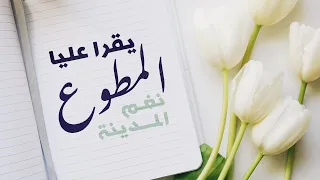 يقرا عليا
المطوع
نغم
المدينة